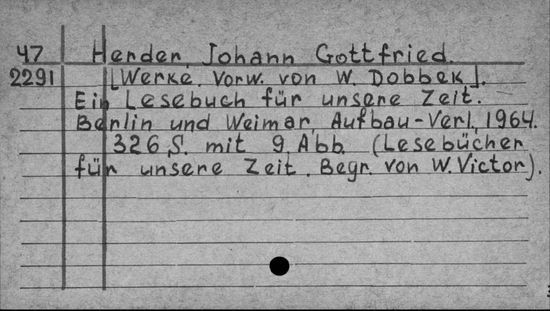 47 Herder, Johann Gottfried.
2291 [Werke. Vorw. von W. Dobbek].
Ein Lesebuch für unsere Zeit.
Berlin und Weimar, Aufbau-Verl. 1964.
326 S. mit 9 Abb. (Lesebücher
für unsere Zeit. Begr. von W. Victor).